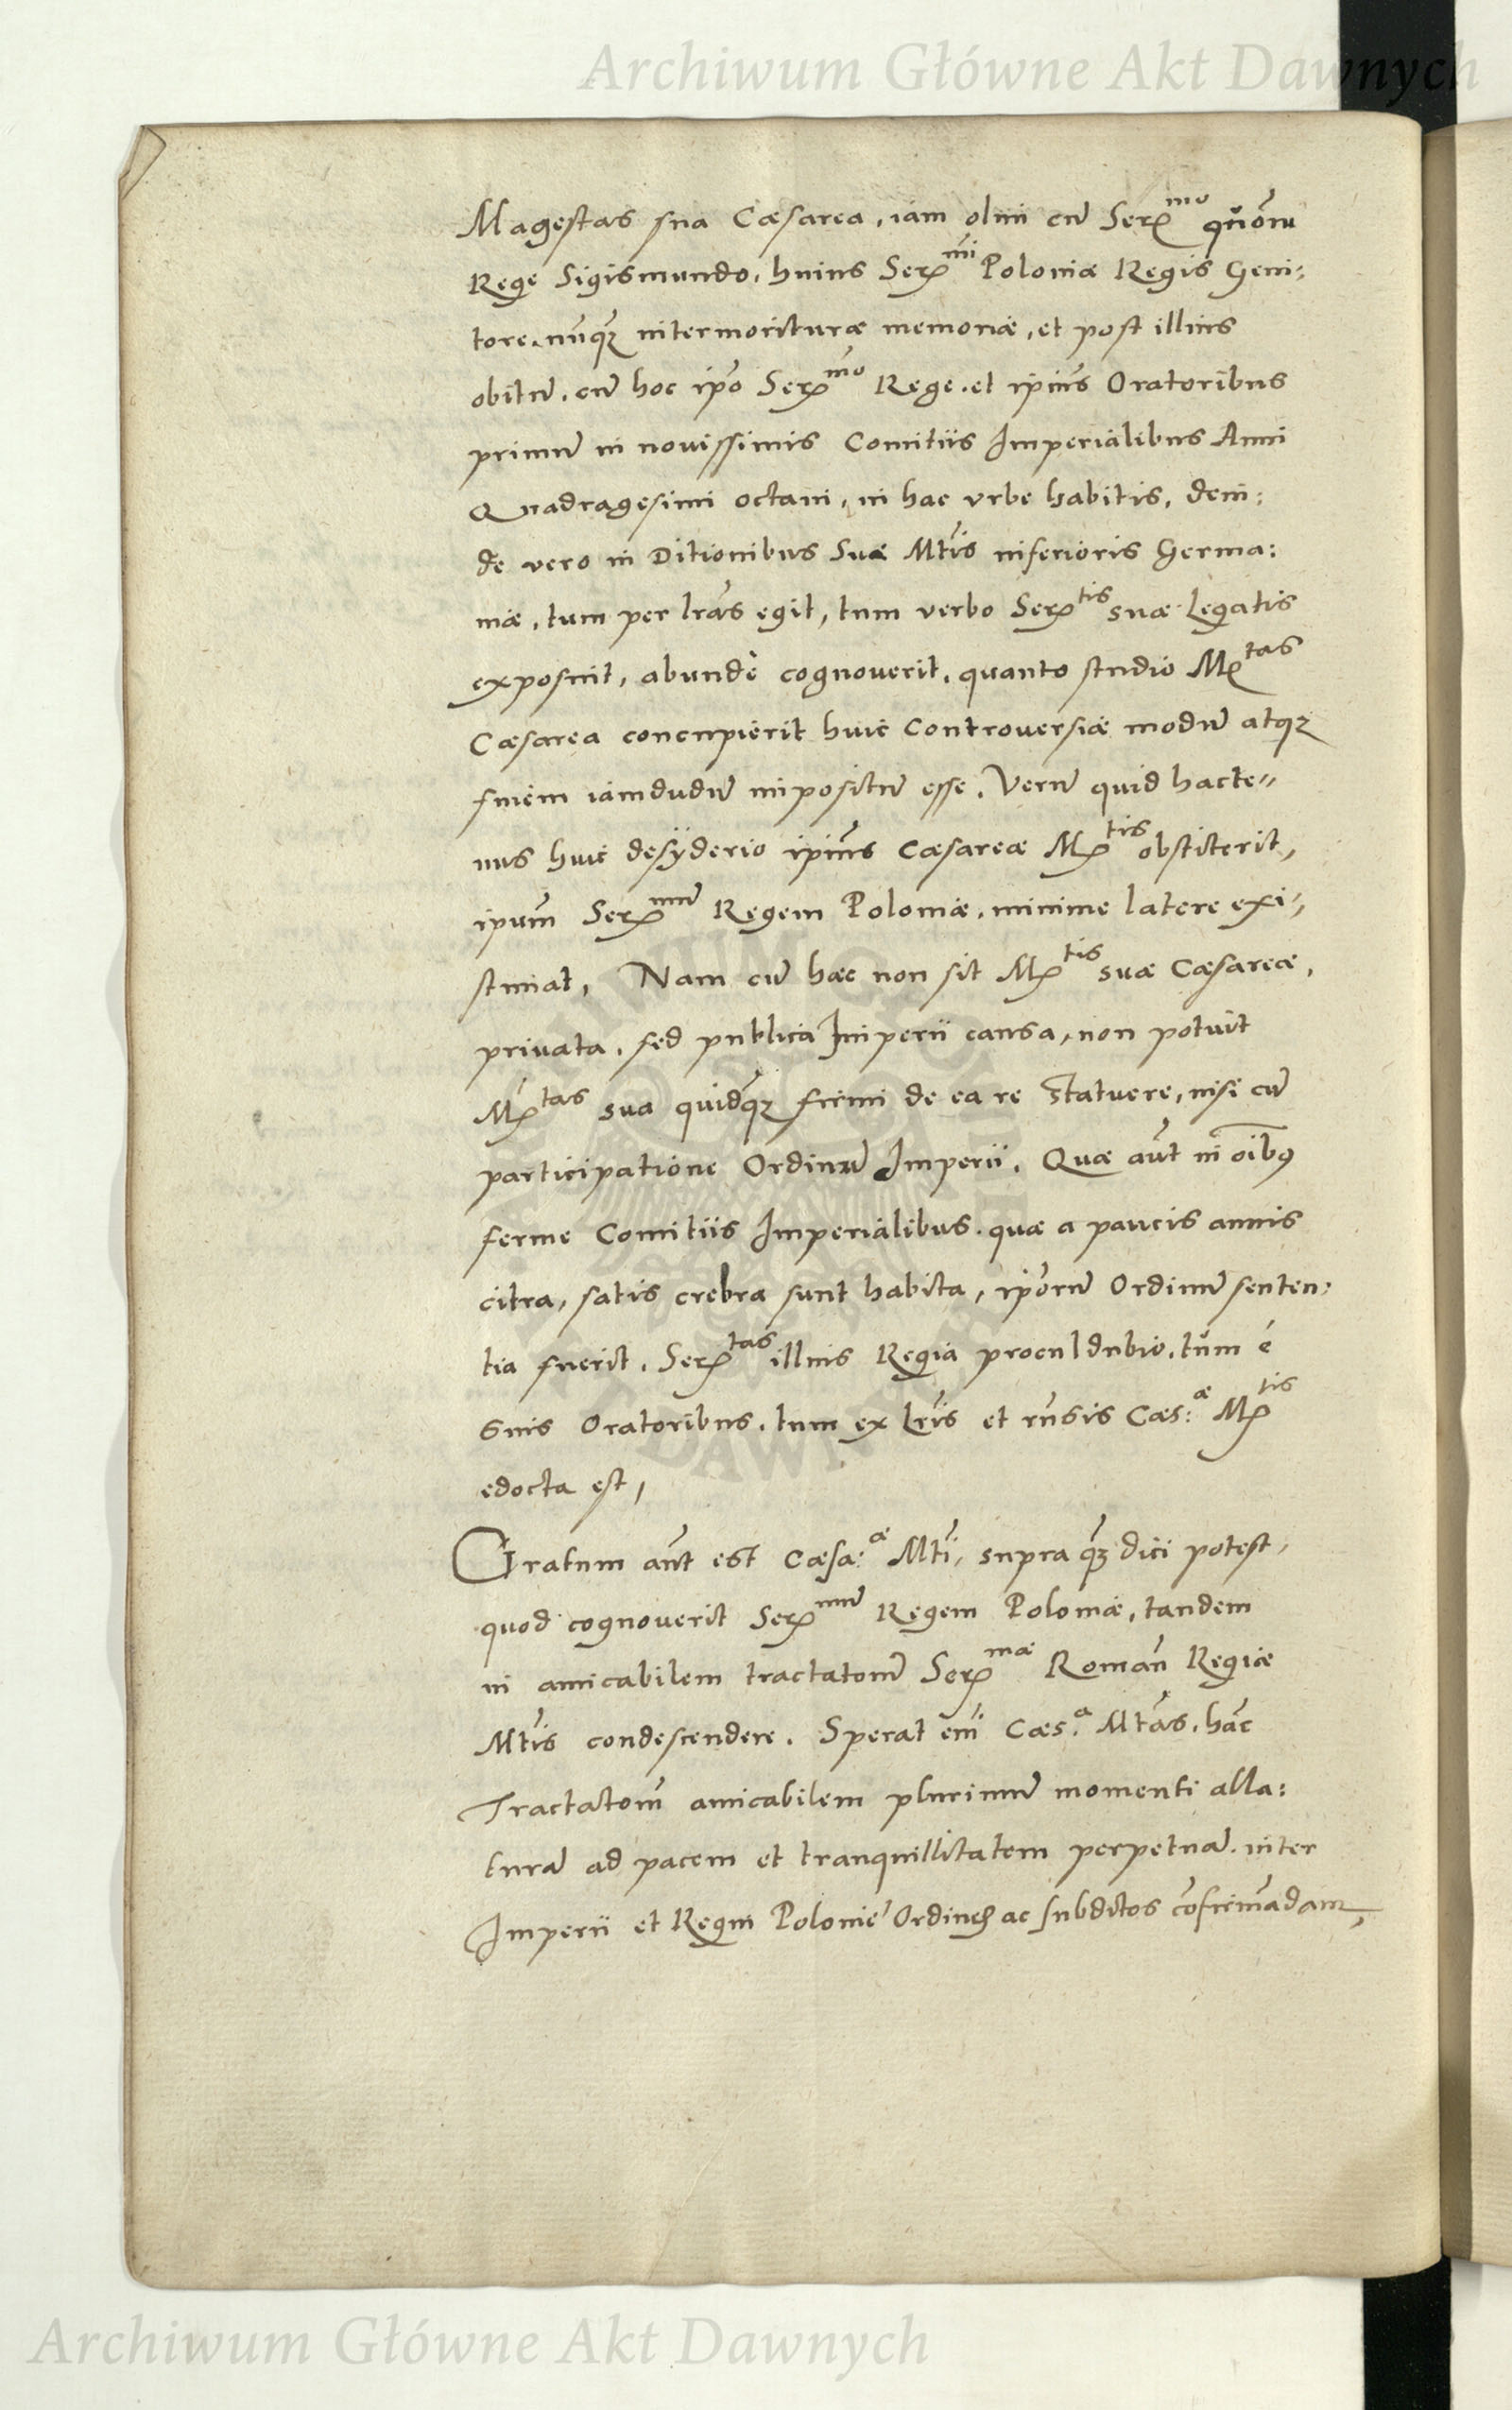 Archiwum Główne Akt Dawnych
Magestas sua Cæsarea, iam olim cū Ser^mo quōm
Rege Sigismundo, huius Ser^mi Poloniæ Regis Geni:
tore, nūqȝ intermorituræ memoriæ, et post illius
obitū, cū hoc ip̄o Ser^mo Rege, et ip̄ius Oratoribus
primū in novissimis Comitiis Imperialibus Anni
Quadragesimi octavi, in hac vrbe habitis, dein:
de vero in Ditionibus Suæ Mtīs inferioris Germa:
niæ, tum per lrās egit, tum verbo Ser^tis suæ Legatis
exposuit, abundè cognoverit, quanto studio M^tas
Cæsarea concupierit huic Controversiæ modū atqȝ
finem iamdudū impositū esse. Verū quid hacte=
nus huic desÿderio ip̄ius Cæsareæ M^tis obstiterit,
ipum̄ Ser^mū Regem Poloniæ, minime latere exi=
stimat, Nam cū hæc non sit M^tis suæ Cæsareæ,
privata, sed publica Imperii causa, non potuit
M^tas sua quidqȝ firmi de ea re statuere, nisi cū
participatione Ordinū Imperii. Quæ aūt in oībꝰ
ferme Comitiis Imperialibus, quæ a paucis annis
citra, satis crebra sunt habita, ip̄orū Ordinū senten:
tia fuerit, Ser^tas illius Regia proculdubio, tum è
Suis Oratoribus, tum ex lrīs et rn̄sis Cæs:^æ M^tis
edocta est,
Gratum aūt est Cæsa:^æ Mtī, supra qȝ dici potest,
quod cognoverit Ser^mū Regem Poloniæ, tandem
in amicabilem tractatōnē Ser^mæ Romān Regiæ
Mtīs condescendere. Sperat em̄ Cæs.^a Mtās, hāc
Tractatōm̄ amicabilem plurimū momenti alla:
turā ad pacem et tranquillitatem perpetuā, inter
Imperii et Regni Polonie Ordines ac subditos cōfirmādam,
Archiwum Główne Akt Dawnych